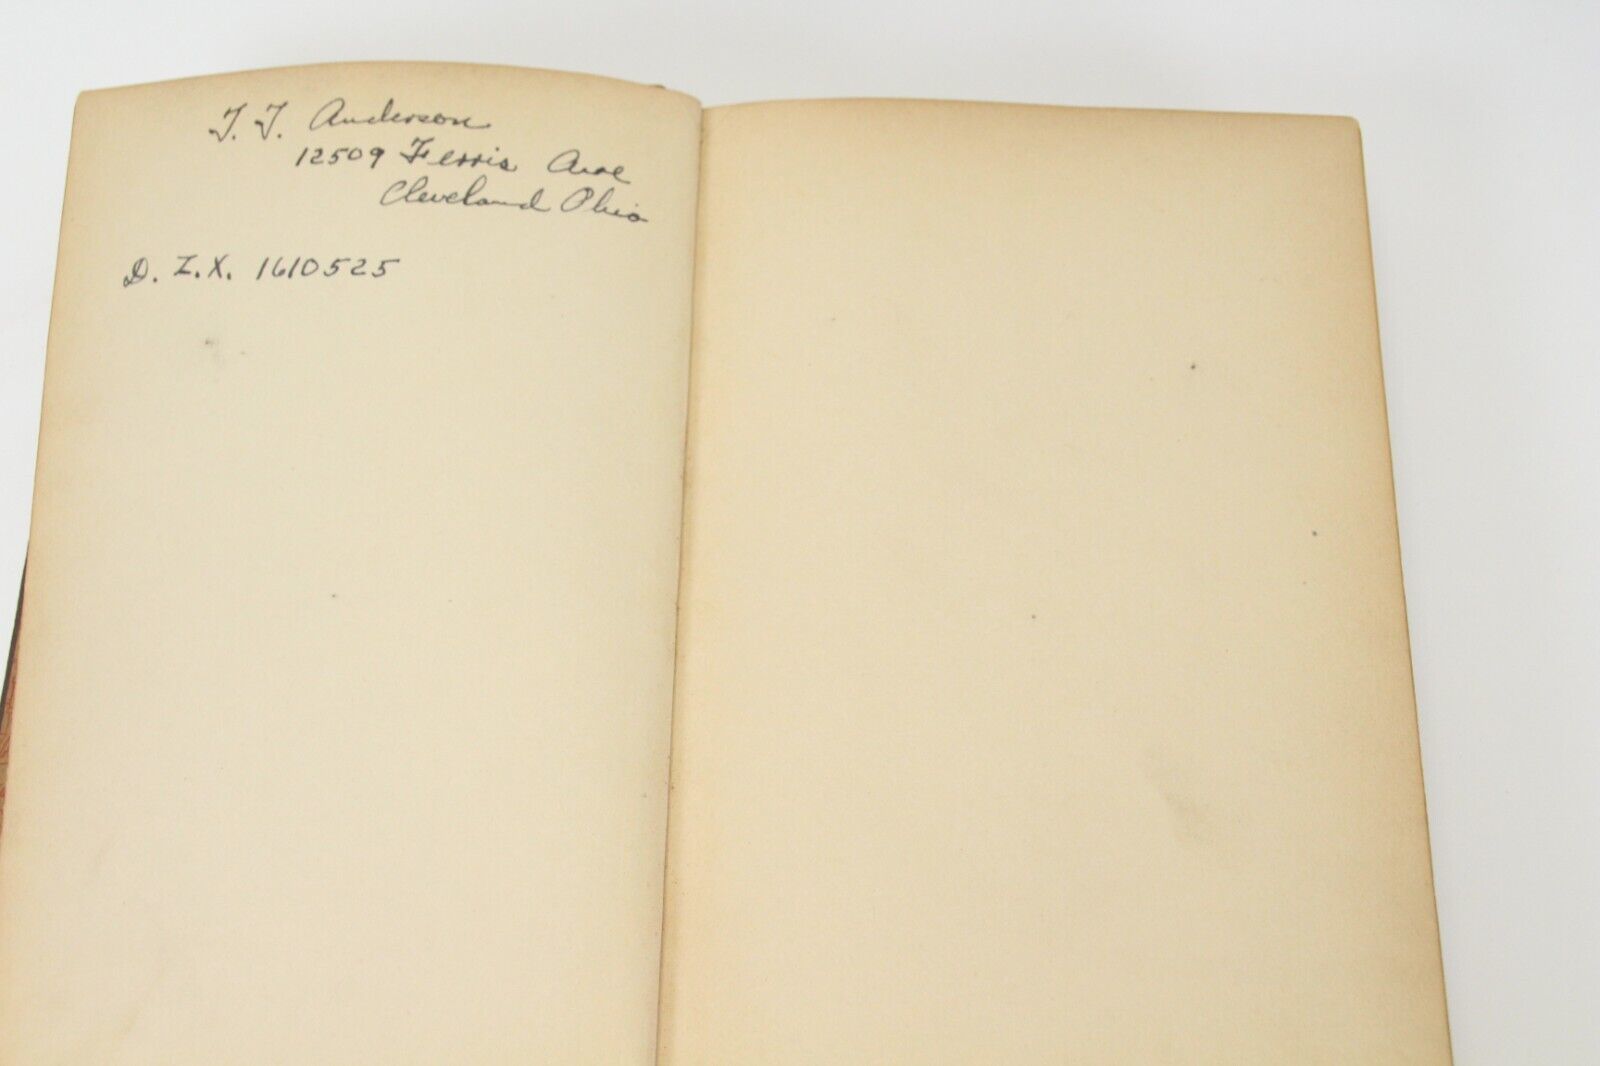 T. T. Anderson
12509 Ferris Ave
Cleveland Ohio
D. Z. X. 1610525